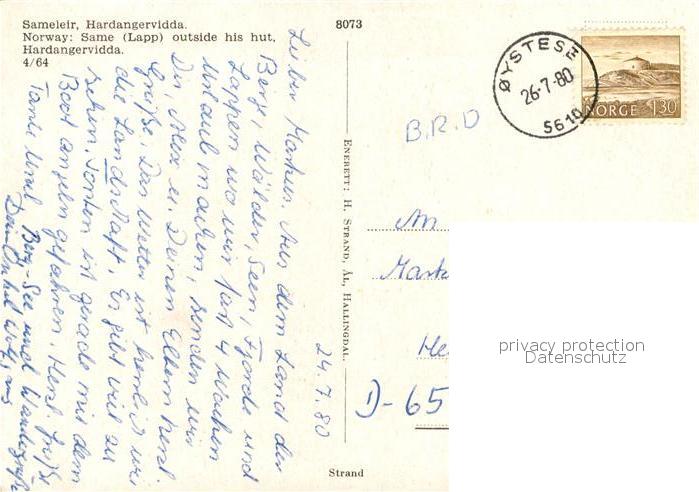 Sameleir, Hardangervidda.
Norway: Same (Lapp) outside his hut,
Hardangervidda.
4/64
8073
24.7.80
Lieber Markus. Aus dem Land der
Berge, Wälder, Seen, Fjorde und
Lappen wo wir fast 4 Wochen
Urlaub machen, senden wir
Dir, Alex u. Deinen Eltern herzl.
Grüße. Das Wetter ist herrlich wie
die Landschaft. Es gibt viel zu
sehen. ist gerade mit dem
Boot angeln gefahren. Herzl. Grüße
Tante Berg-See und
Dein Onkel
Enerett: H. Strand, Ål, Hallingdal.
Strand
ØYSTESE
26-7-80
5610
NORGE 130
B.R.D
An
Mark
He
D-65
privacy protection
Datenschutz